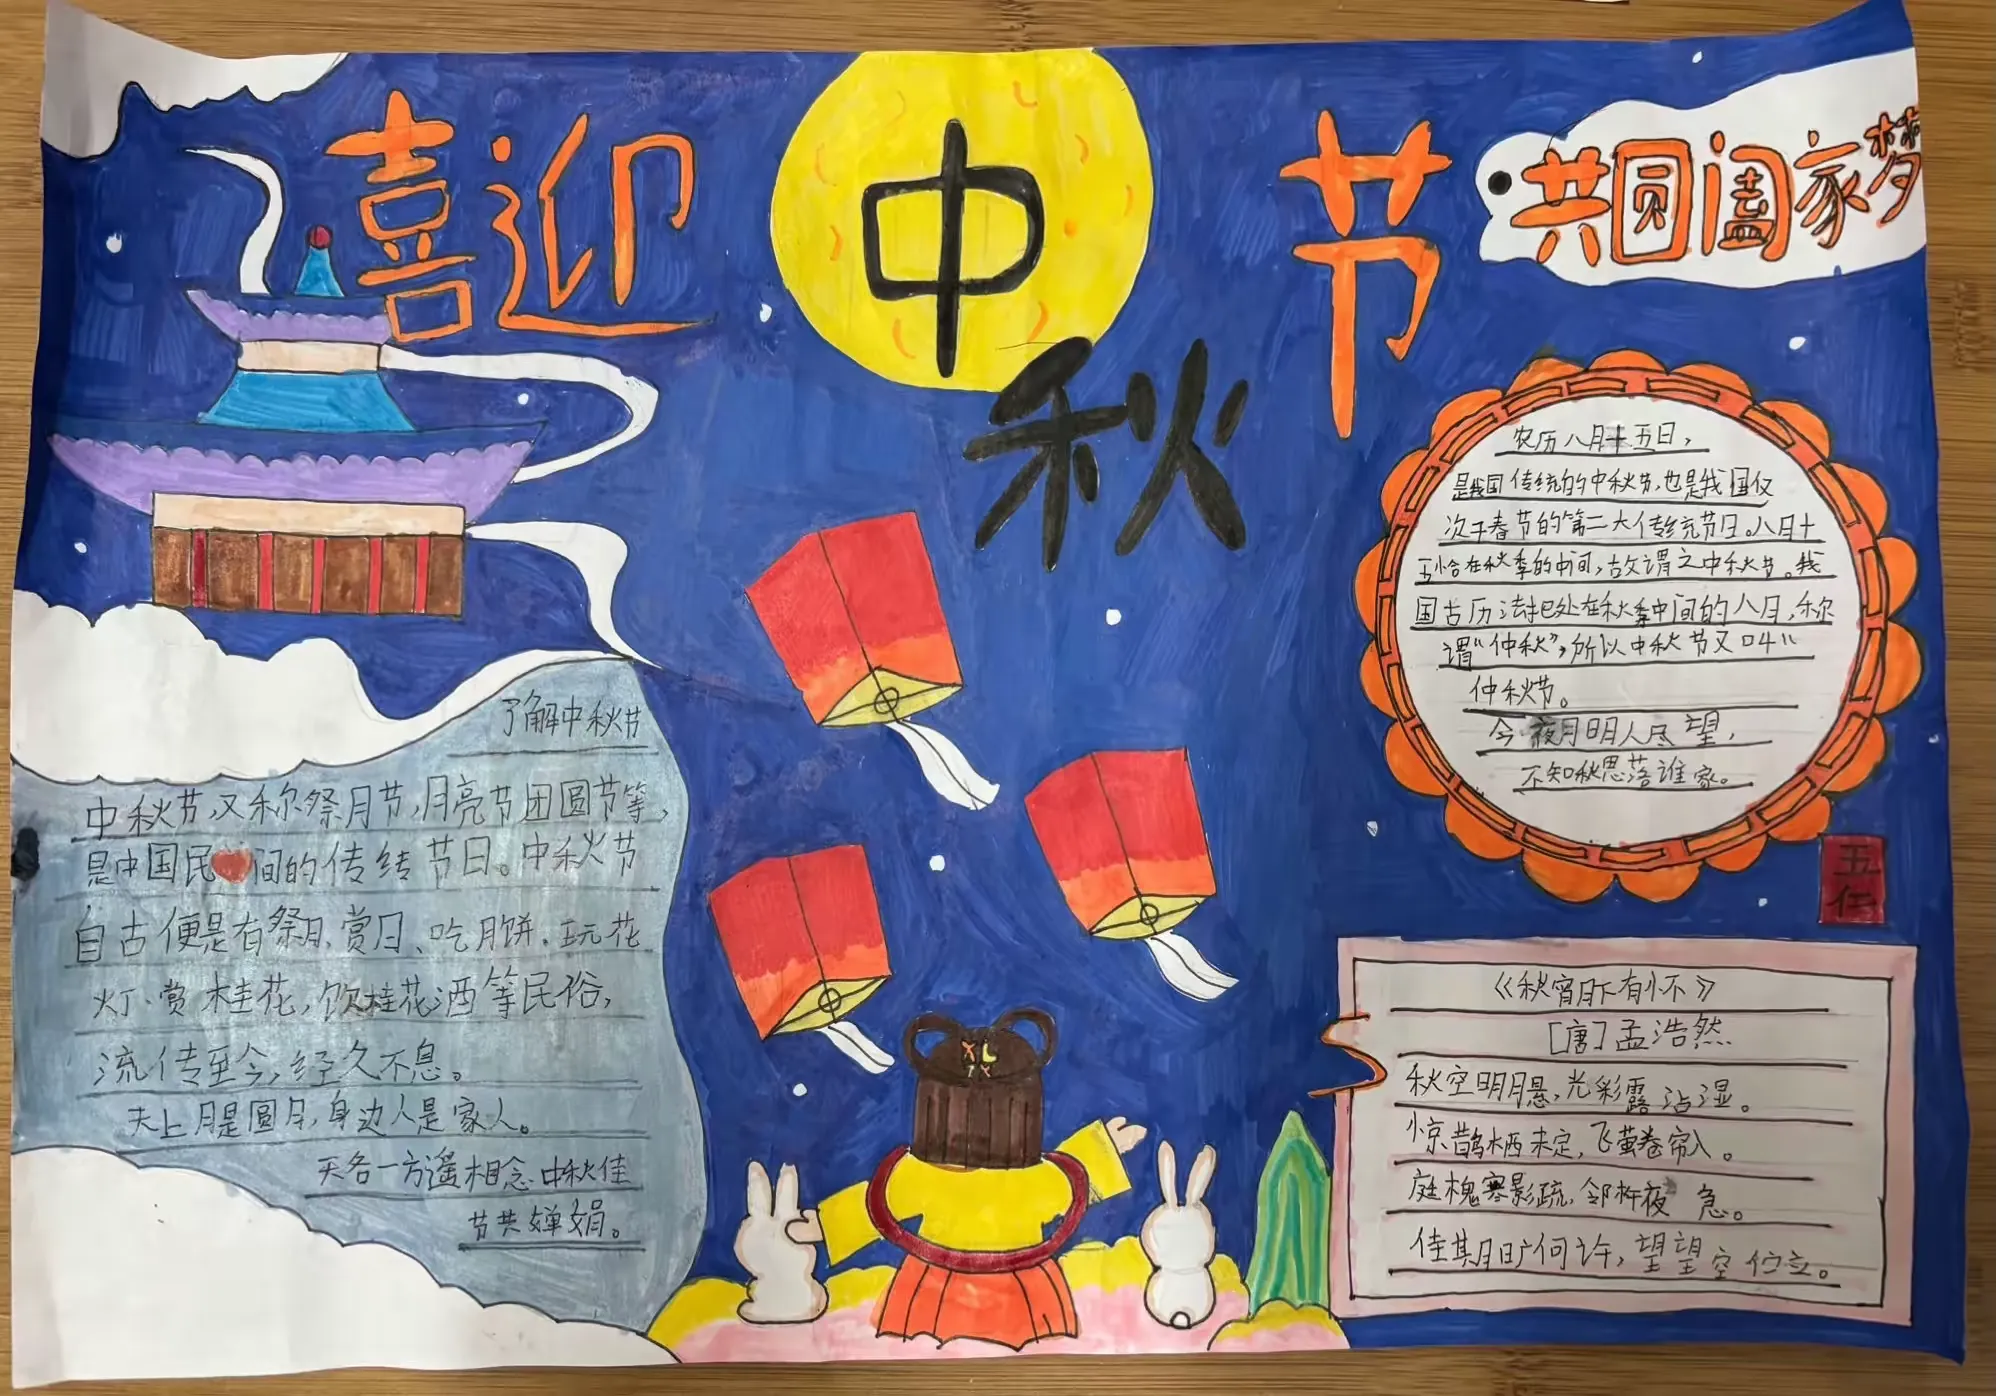 喜迎中秋节
共圆阖家梦
了解中秋节
中秋节,又称祭月节,月亮节团圆节等,
是中国民间的传统节日。中秋节
自古便是有祭月、赏月、吃月饼、玩花
灯、赏桂花,饮桂花酒等民俗,
流传至今,经久不息。
天上月是圆月,身边人是家人。
天各一方遥相念中秋佳
节共婵娟。
农历八月十五日,
是我国传统的中秋节,也是我国仅
次于春节的第二大传统节日。八月十
五恰在秋季的中间,故谓之中秋节。我
国古历法把处在秋季中间的八月,称
谓“仲秋”,所以中秋节又叫“
仲秋节。
今夜月明人尽望,
不知秋思落谁家。
五仁
《秋宵月下有怀》
[唐]孟浩然
秋空明月悬,光彩露沾湿。
惊鹊栖未定,飞萤卷帘入。
庭槐寒影疏,邻杵夜急。
佳期旷何许,望望空伫立。